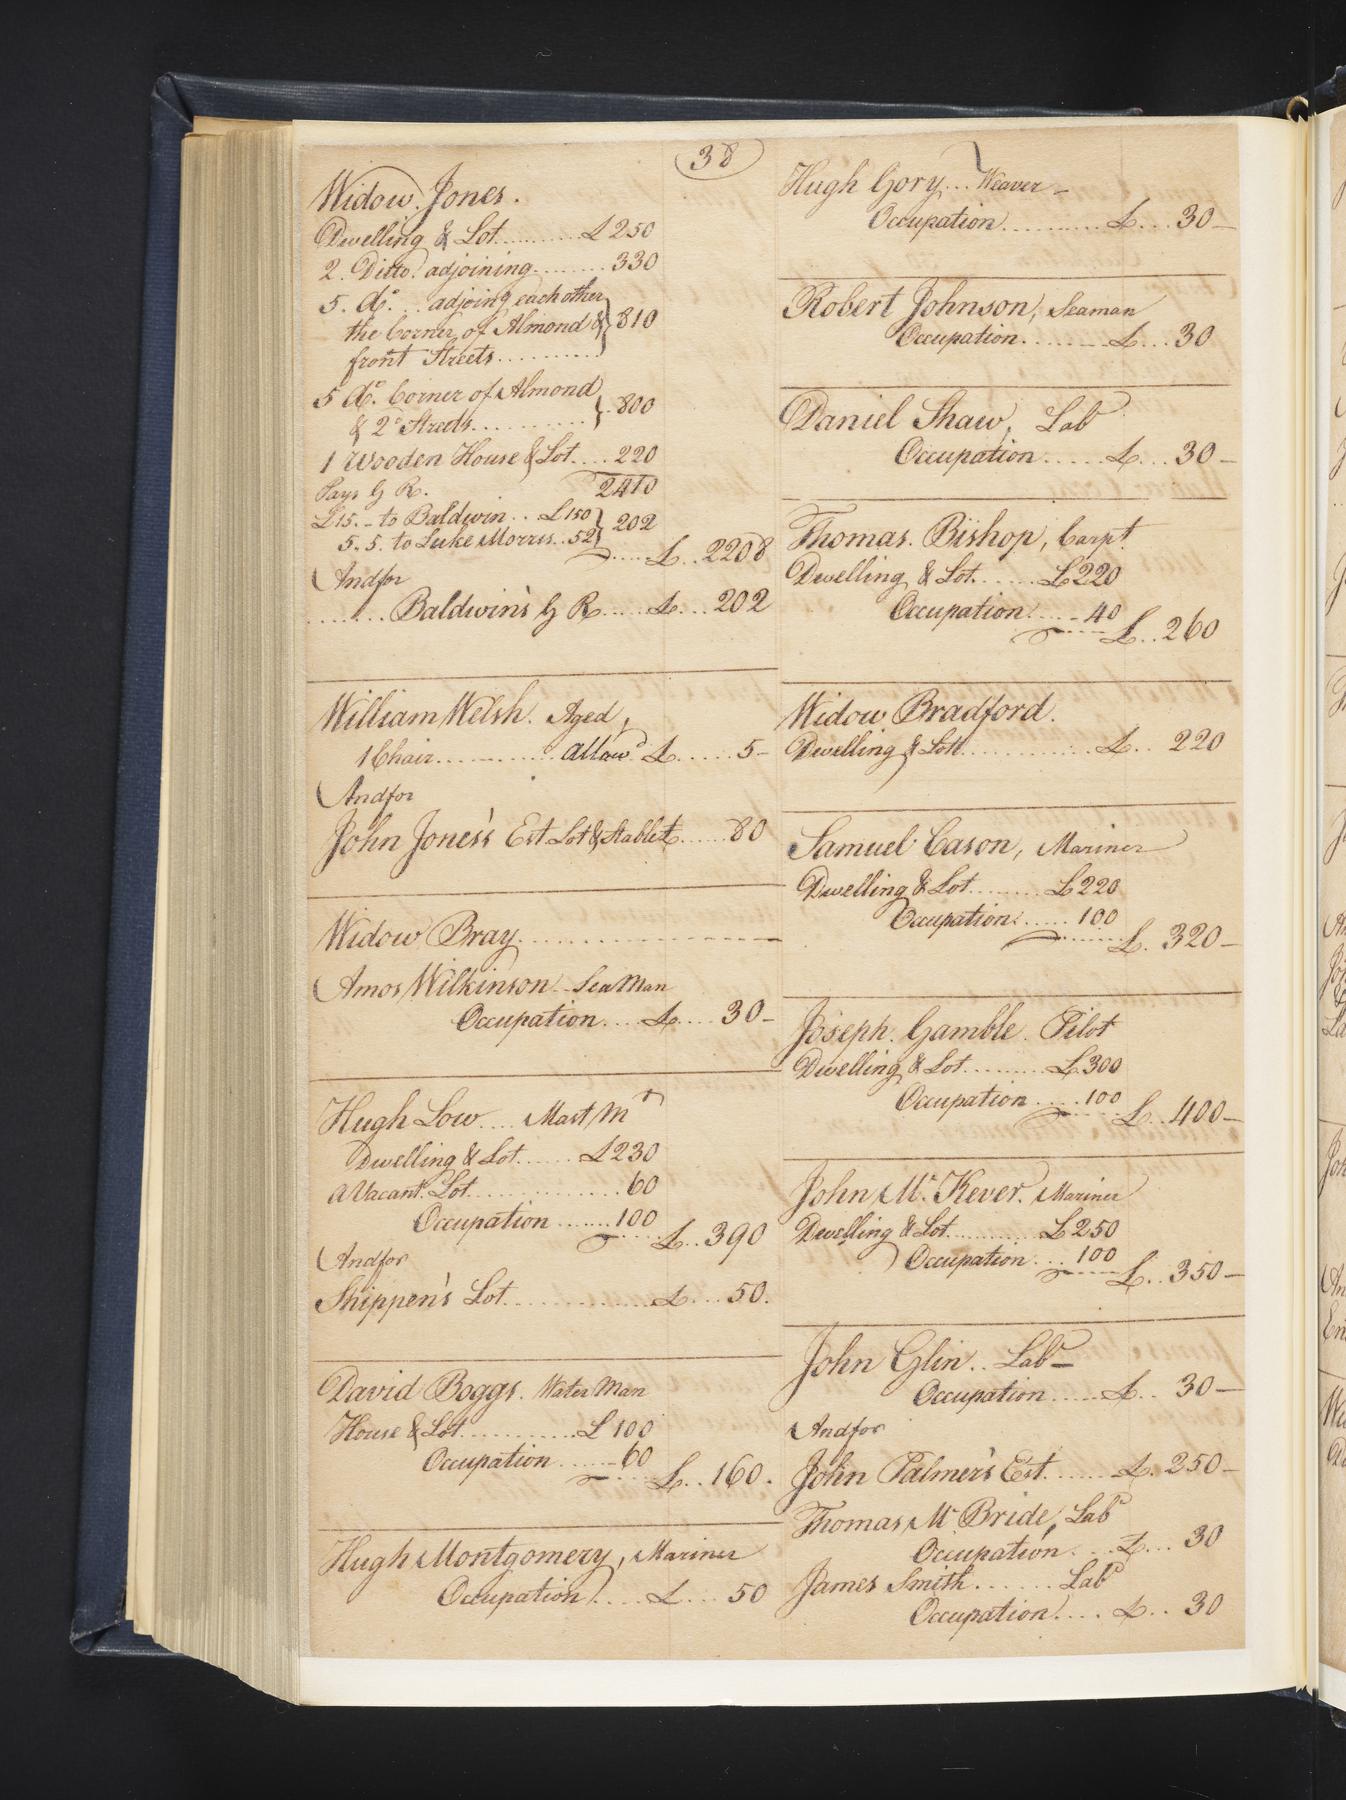 38
Widow Jones.
Dwelling & Lot.......... £250
2. Ditto. adjoining........ 330
5. do. ... adjoing each other
the Corner of Almond & } 810
front Streets...........
5 do. Corner of Almond
& 2d Streets........... } 800
1 Wooden House & Lot.... 220
2410
Pays G R.
£15.- to Baldwin.. £150 } 202
5.5. to Luke Morris.. 52
£.. 2208
And for
....... Baldwin's G R..... £... 202
William Welsh. Aged,
1 Chair............ allowd £...... 5-
And for
John Jones's Est Lot & Stable £...... 80
Widow Bray..................
Amos Wilkinson - Sea Man
Occupation.... £.... 30-
Hugh Low.... Mast Mr
Dwelling & Lot...... £230
a Vacant Lot.............. 60
Occupation ....... 100
£.. 390
And for
Shippen's Lot............. £.... 50.
David Boggs. Water Man
House & Lot........... £100
Occupation ...... 60
£.. 160.
Hugh Montgomery, Mariner
Occupation..... £.... 50
Hugh Gory... Weaver -
Occupation........... £... 30-
Robert Johnson, Seaman
Occupation......... £... 30
Daniel Shaw, Labr
Occupation...... £... 30-
Thomas. Bishop, Carpt.
Dwelling & Lot...... £220
Occupation..... 40
£.. 260
Widow Bradford.
Dwelling & Lott............. £.. 220
Samuel Cason, Mariner
Dwelling & Lot........ £220
Occupation...... 100
£. 320-
Joseph. Gamble. Pilot
Dwelling & Lot......... £300
Occupation..... 100
£.. 400-
John Mc. Kever. Mariner
Dwelling & Lot.......... £250
Occupation.... 100
£.. 350-
John Glin.. Labr-
Occupation..... £.. 30-
And for
John Palmer's Est...... £. 250-
Thomas Mc Bride, Labr
Occupation... £... 30
James Smith....... Labr
Occupation.... £.. 30